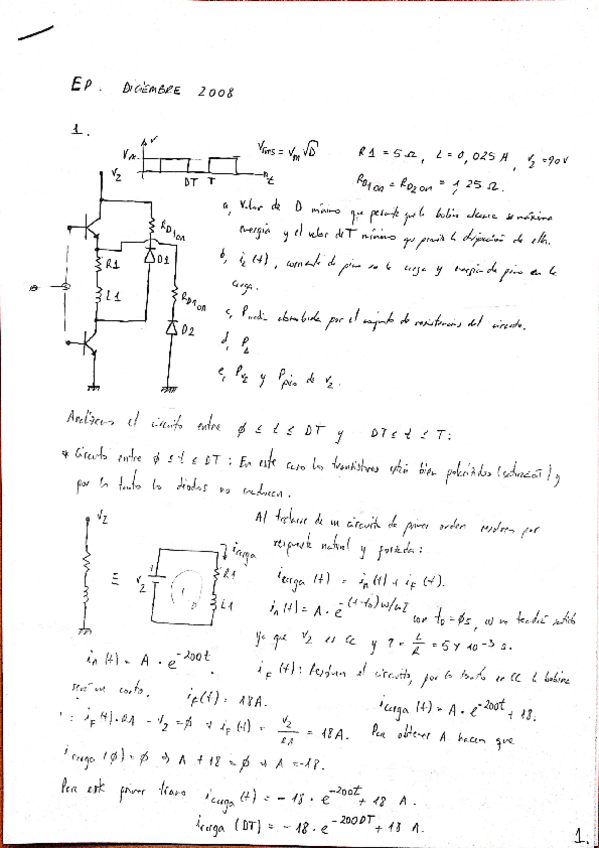 EP. DICIEMBRE 2008
1.
Vm V
DT T t
Vrms = Vm √D
R1 = 5 Ω, L = 0,025 H, V2 = 90 V
RD1on = RD2on = 1,25 Ω.
V2
R1
L1
RD1on
D1
RD1on
D2
a, Valor de D mínimo que permite que la bobina alcance su máxima
energía y el valor de T mínimo que permita la disipación de ella.
b, iL(t), corriente de pico en la carga y energía de pico en la
carga.
c, Pmedia absorbida por el conjunto de resistencias del circuito.
d, PL
e, PV2 y Ppico de V2.
Analizamos el circuito entre ∅ ≤ t ≤ DT y DT ≤ t ≤ T:
* Circuito entre ∅ ≤ t ≤ DT: En este caso los transistores están bien polarizados (saturación) y
por lo tanto los diodos no conducen.
V2
≡
V2
icarga
R1
L1
Al tratarse de un circuito de primer orden resolvemos por
respuesta natural y forzada:
icarga(t) = in(t) + iF(t).
in(t) = A · e^-(t-t0)/τ con t0 = ∅s,
ya que V2 es CC y τ = L/R = 5 × 10^-3 s.
in(t) = A · e^-200t.
iF(t): Resolver el circuito, por lo tanto en CC L bobina
será un corto. iF(t) = 18A.
icarga(t) = A · e^-200t + 18.
: iF(t) · R1 - V2 = ∅ → iF(t) = V2/R1 = 18A. Para obtener A hacemos que
icarga(∅) = ∅ → A + 18 = ∅ → A = -18.
Para este primer tramo icarga(t) = -18 · e^-200t + 18 A.
icarga(DT) = -18 · e^-200DT + 18 A.
1.